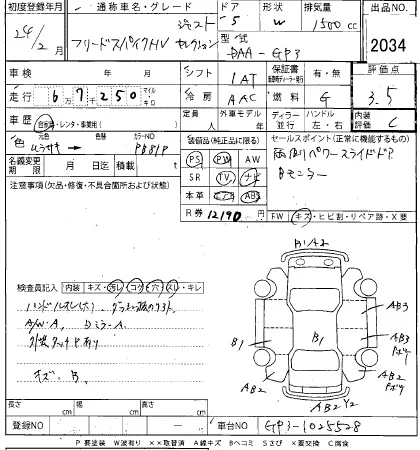 初度登録年月 通称車名・グレード ドア 形状 排気量 出品NO
24/2月 5 W 1500cc
フリードスパイクHV セレクション 型式 DAA-GP3 2034
車検 年 月 シフト 1AT 保証書 有・無 評価点
走行 6万7千250 マイル キロ 冷房 AAC 燃料 G 3.5
車歴 自家用・レンタ・事業用( ) 定員 人 外車モデル 年 ディーラー 並行 ハンドル 左・右 内装評価 C
色 ムラサキ→ 色替 カラーNO PB81P 装備品(純正品に限る) セールスポイント(正常に機能するもの)
名義変更期限 月 日 積載 t PS PW AW 両側パワースライドドア
注意事項(欠品・修復・不具合箇所および状態) SR TV ナビ Bモニター
本革 エアB ABS
R券 12190 円 FW キズ・ヒビ割・リペア跡・X要
B1/A2
検査員記入 内装 キズ・汚レ・コゲ・穴・スレ・キレ
ハンドルスレ(大)
A/W A, ミラーA
キズ・B
B1 B1 AB3
AB3 Pボケ
AB2 AB2 Pボケ
AB2 Y2
長さ cm 幅 cm 高さ cm
登録NO 車台NO GP3-1025528
P要塗装 W波有り ××取替済 A線キズ Bヘコミ Sさび ×要交換 C腐食